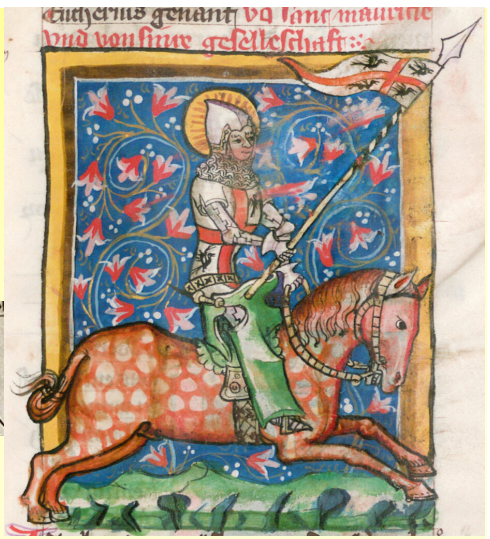 Eucherius genant vō sant mauricie
vnd von sinre geselleschaft